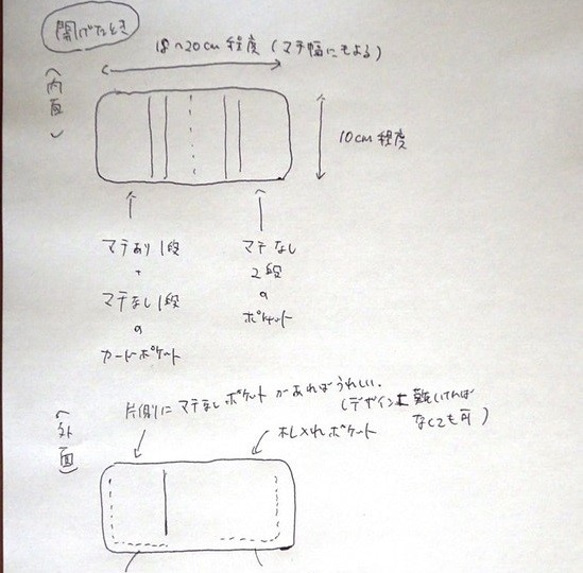 開げたとき
18〜20cm 程度 (マチ幅にもよる)
(内面)
10cm 程度
マチあり1段
+
マチなし1段
の
カードポケット
マチなし
2段
の
ポケット
(外面)
片側にマチなしポケットがあればうれしい。
(デザイン上難しければ
なくても可)
札入れポケット